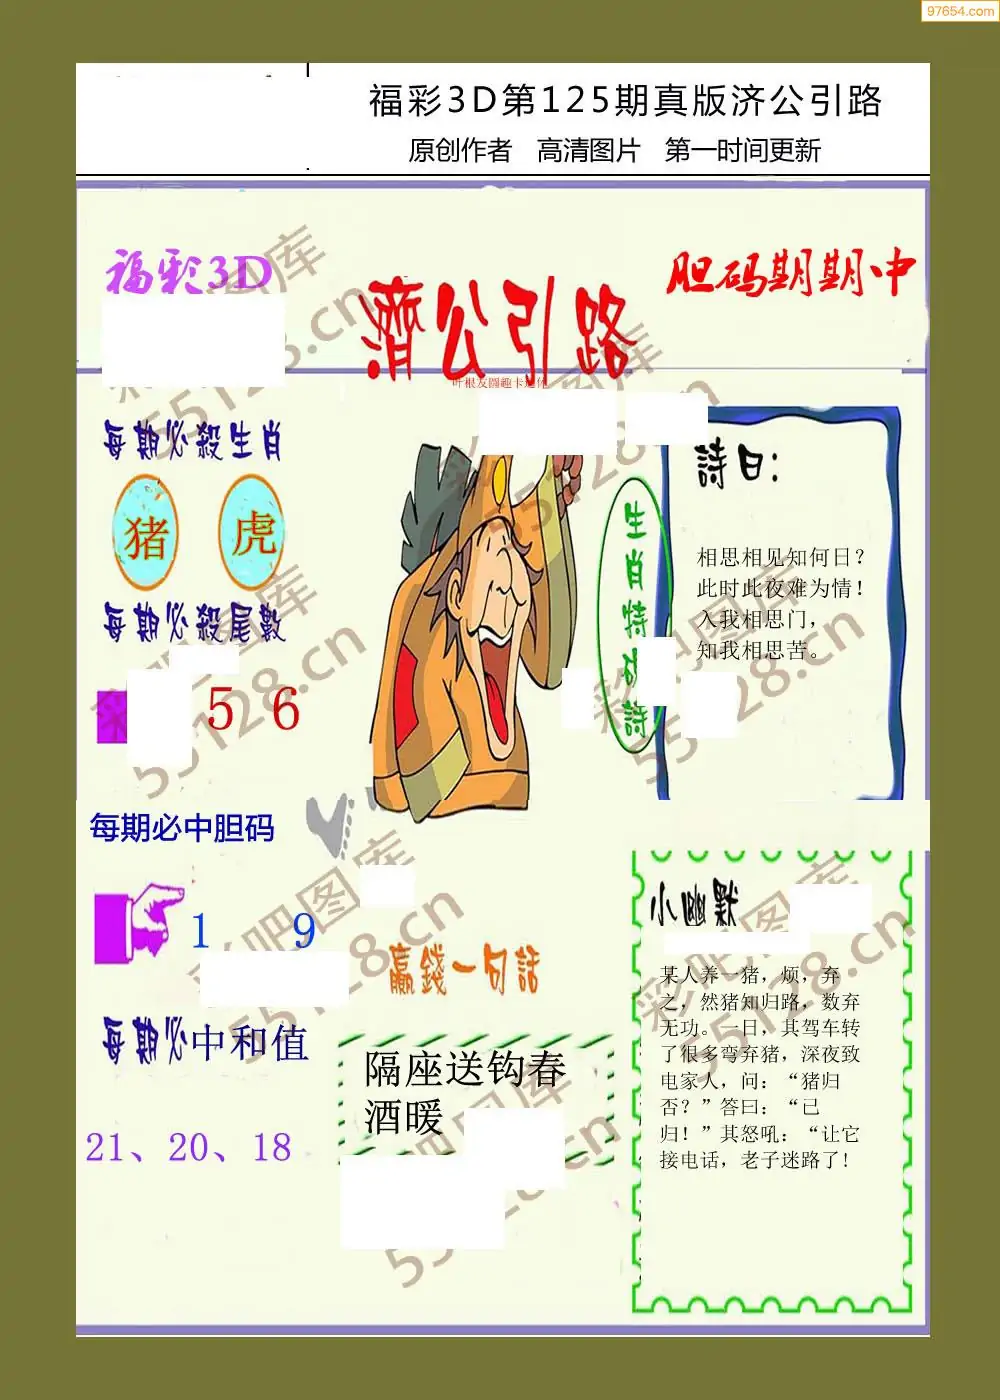 97654.com
福彩3D第125期真版济公引路
原创作者 高清图片 第一时间更新
福彩3D
濟公引路
胆码期期中
每期必殺生肖
猪 虎
每期必殺尾數
5 6
每期必中胆码
1 9
每期必中和值
21、20、18
生肖特碼詩
詩曰:
相思相见知何日？
此时此夜难为情！
入我相思门，
知我相思苦。
贏錢一句話
隔座送钩春
酒暖
小幽默
某人养一猪，烦，弃
之，然猪知归路，数弃
无功。一日，其驾车转
了很多弯弃猪，深夜致
电家人，问：“猪归
否？”答曰：“已
归！”其怒吼：“让它
接电话，老子迷路了!
彩吧图库
55128.cn